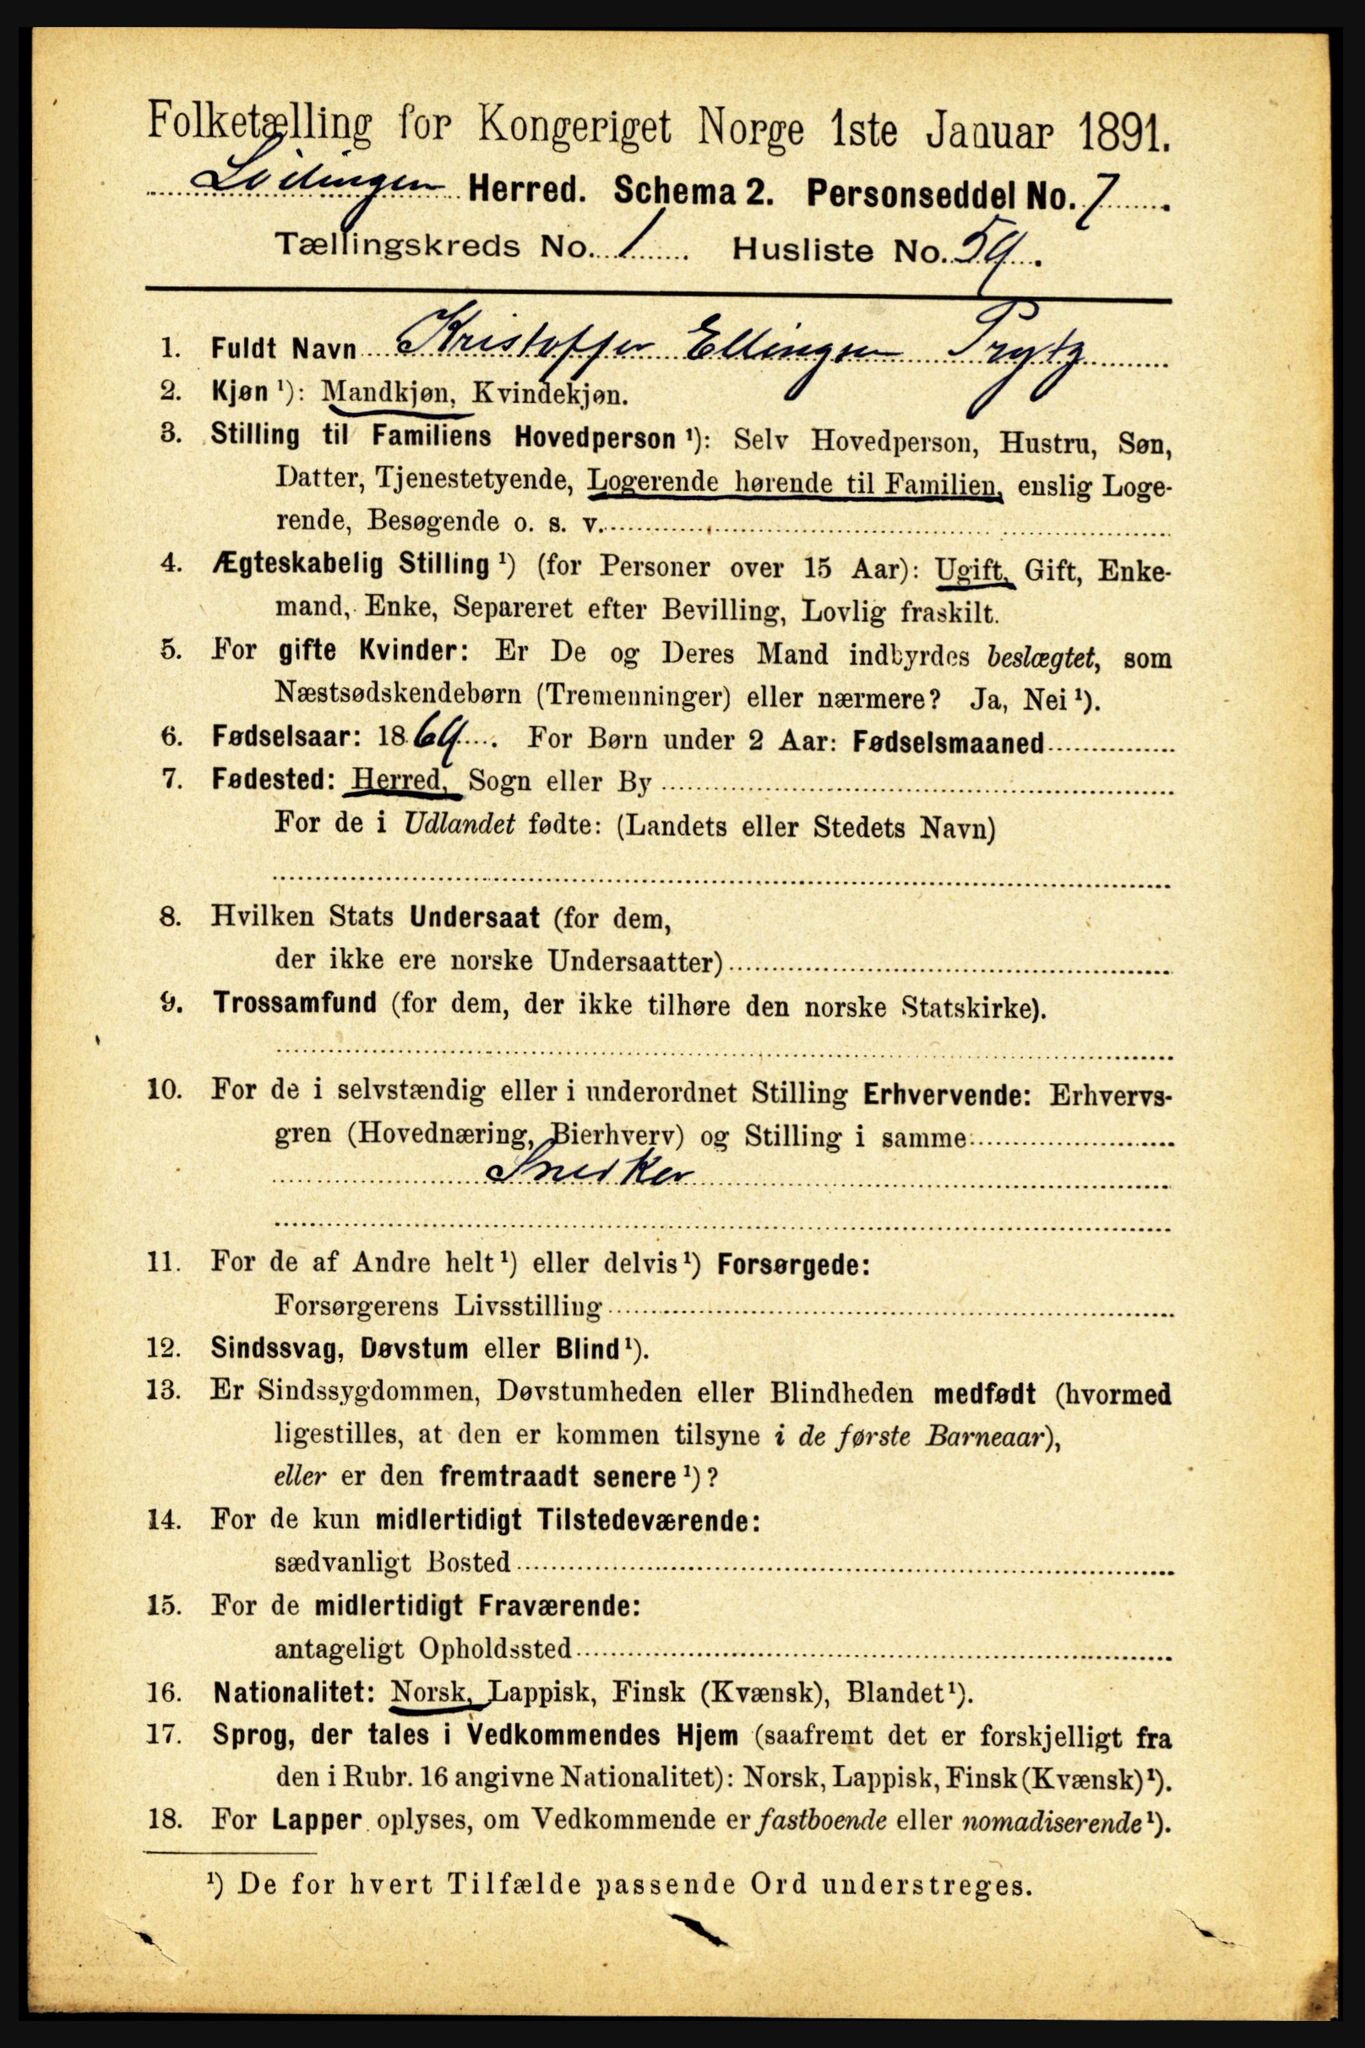 Folketælling for Kongeriget Norge 1ste Januar 1891.
Lødingen Herred. Schema 2. Personseddel No. 7.
Tællingskreds No. 1. Husliste No. 59.
1. Fuldt Navn Kristoffer Ellingsen Prytz
2. Kjøn ¹): Mandkjøn, Kvindekjøn.
3. Stilling til Familiens Hovedperson ¹): Selv Hovedperson, Hustru, Søn,
Datter, Tjenestetyende, Logerende hørende til Familien, enslig Loge-
rende, Besøgende o. s. v.
4. Ægteskabelig Stilling ¹) (for Personer over 15 Aar): Ugift, Gift, Enke-
mand, Enke, Separeret efter Bevilling, Lovlig fraskilt.
5. For gifte Kvinder: Er De og Deres Mand indbyrdes beslægtet, som
Næstsødskendebørn (Tremenninger) eller nærmere? Ja, Nei ¹).
6. Fødselsaar: 1869. For Børn under 2 Aar: Fødselsmaaned
7. Fødested: Herred, Sogn eller By
For de i Udlandet fødte: (Landets eller Stedets Navn)
8. Hvilken Stats Undersaat (for dem,
der ikke ere norske Undersaatter)
9. Trossamfund (for dem, der ikke tilhøre den norske Statskirke).
10. For de i selvstændig eller i underordnet Stilling Erhvervende: Erhvervs-
gren (Hovednæring, Bierhverv) og Stilling i samme
Snedker
11. For de af Andre helt ¹) eller delvis ¹) Forsørgede:
Forsørgerens Livsstilling
12. Sindssvag, Døvstum eller Blind ¹).
13. Er Sindssygdommen, Døvstumheden eller Blindheden medfødt (hvormed
ligestilles, at den er kommen tilsyne i de første Barneaar),
eller er den fremtraadt senere ¹)?
14. For de kun midlertidigt Tilstedeværende:
sædvanligt Bosted
15. For de midlertidigt Fraværende:
antageligt Opholdssted
16. Nationalitet: Norsk, Lappisk, Finsk (Kvænsk), Blandet ¹).
17. Sprog, der tales i Vedkommendes Hjem (saafremt det er forskjelligt fra
den i Rubr. 16 angivne Nationalitet): Norsk, Lappisk, Finsk (Kvænsk) ¹).
18. For Lapper oplyses, om Vedkommende er fastboende eller nomadiserende ¹).
¹) De for hvert Tilfælde passende Ord understreges.